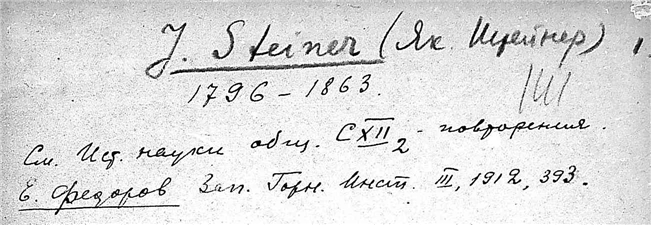 J. Steiner (Як. Штейнер) 1.
1796 – 1863.
См. Ист. науки общ. CXII2 - повторения.
Е. Федоров Зап. Горн. Инст. III, 1912, 393.